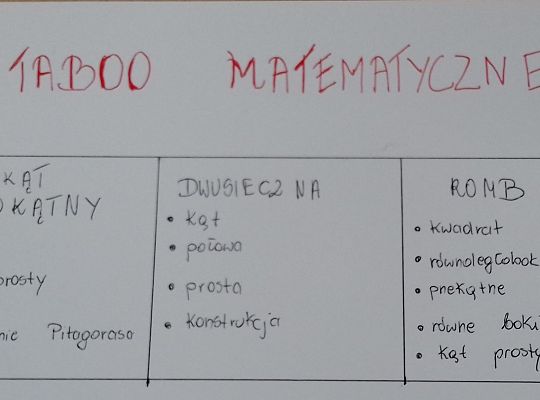 TABOO MATEMATYCZNE
KĄT
OKĄTNY
prosty
nie Pitagorasa
DWUSIECZNA
• kąt
• połowa
• prosta
• konstrukcja
ROMB
• kwadrat
• równoległobok
• przekątne
• równe boki
• kąt prosty